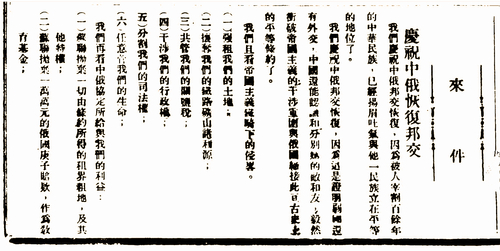 來件
慶祝中俄恢復邦交
我們慶祝中俄邦交恢復，因為被人宰割百餘年
的中華民族，已經揚眉吐氣與他一民族立在平等
的地位了。
我們慶祝中俄邦交恢復，因為這是證明弱國還
有外交，中國還能認識和分別她的敵和友，毅然
衝破帝國主義的干涉重圍與俄國締接此亘古史上
的平等條約了。
我們且看帝國主義下的侵畧。
(一)強租我們的土地；
(二)攘奪我們的鐵路礦山諸利源；
(三)共管我們的關鹽稅；
(四)干涉我們的行政權；
(五)分割我們的司法權；
(六)任意害我們的生命；
我們再看中俄協定所給與我們的利益：
(一)蘇聯拋棄一切由條約所得的租界租地，及其
他特權；
(二)蘇聯拋棄一萬萬元的俄國庚子賠款，作為教
育基金；